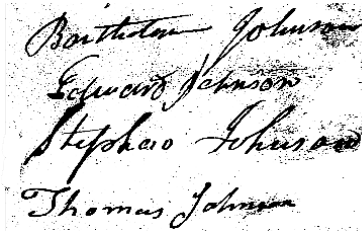 Bartholom Johnson
Edward Johnson
Stephen Johnson
Thomas Johnson